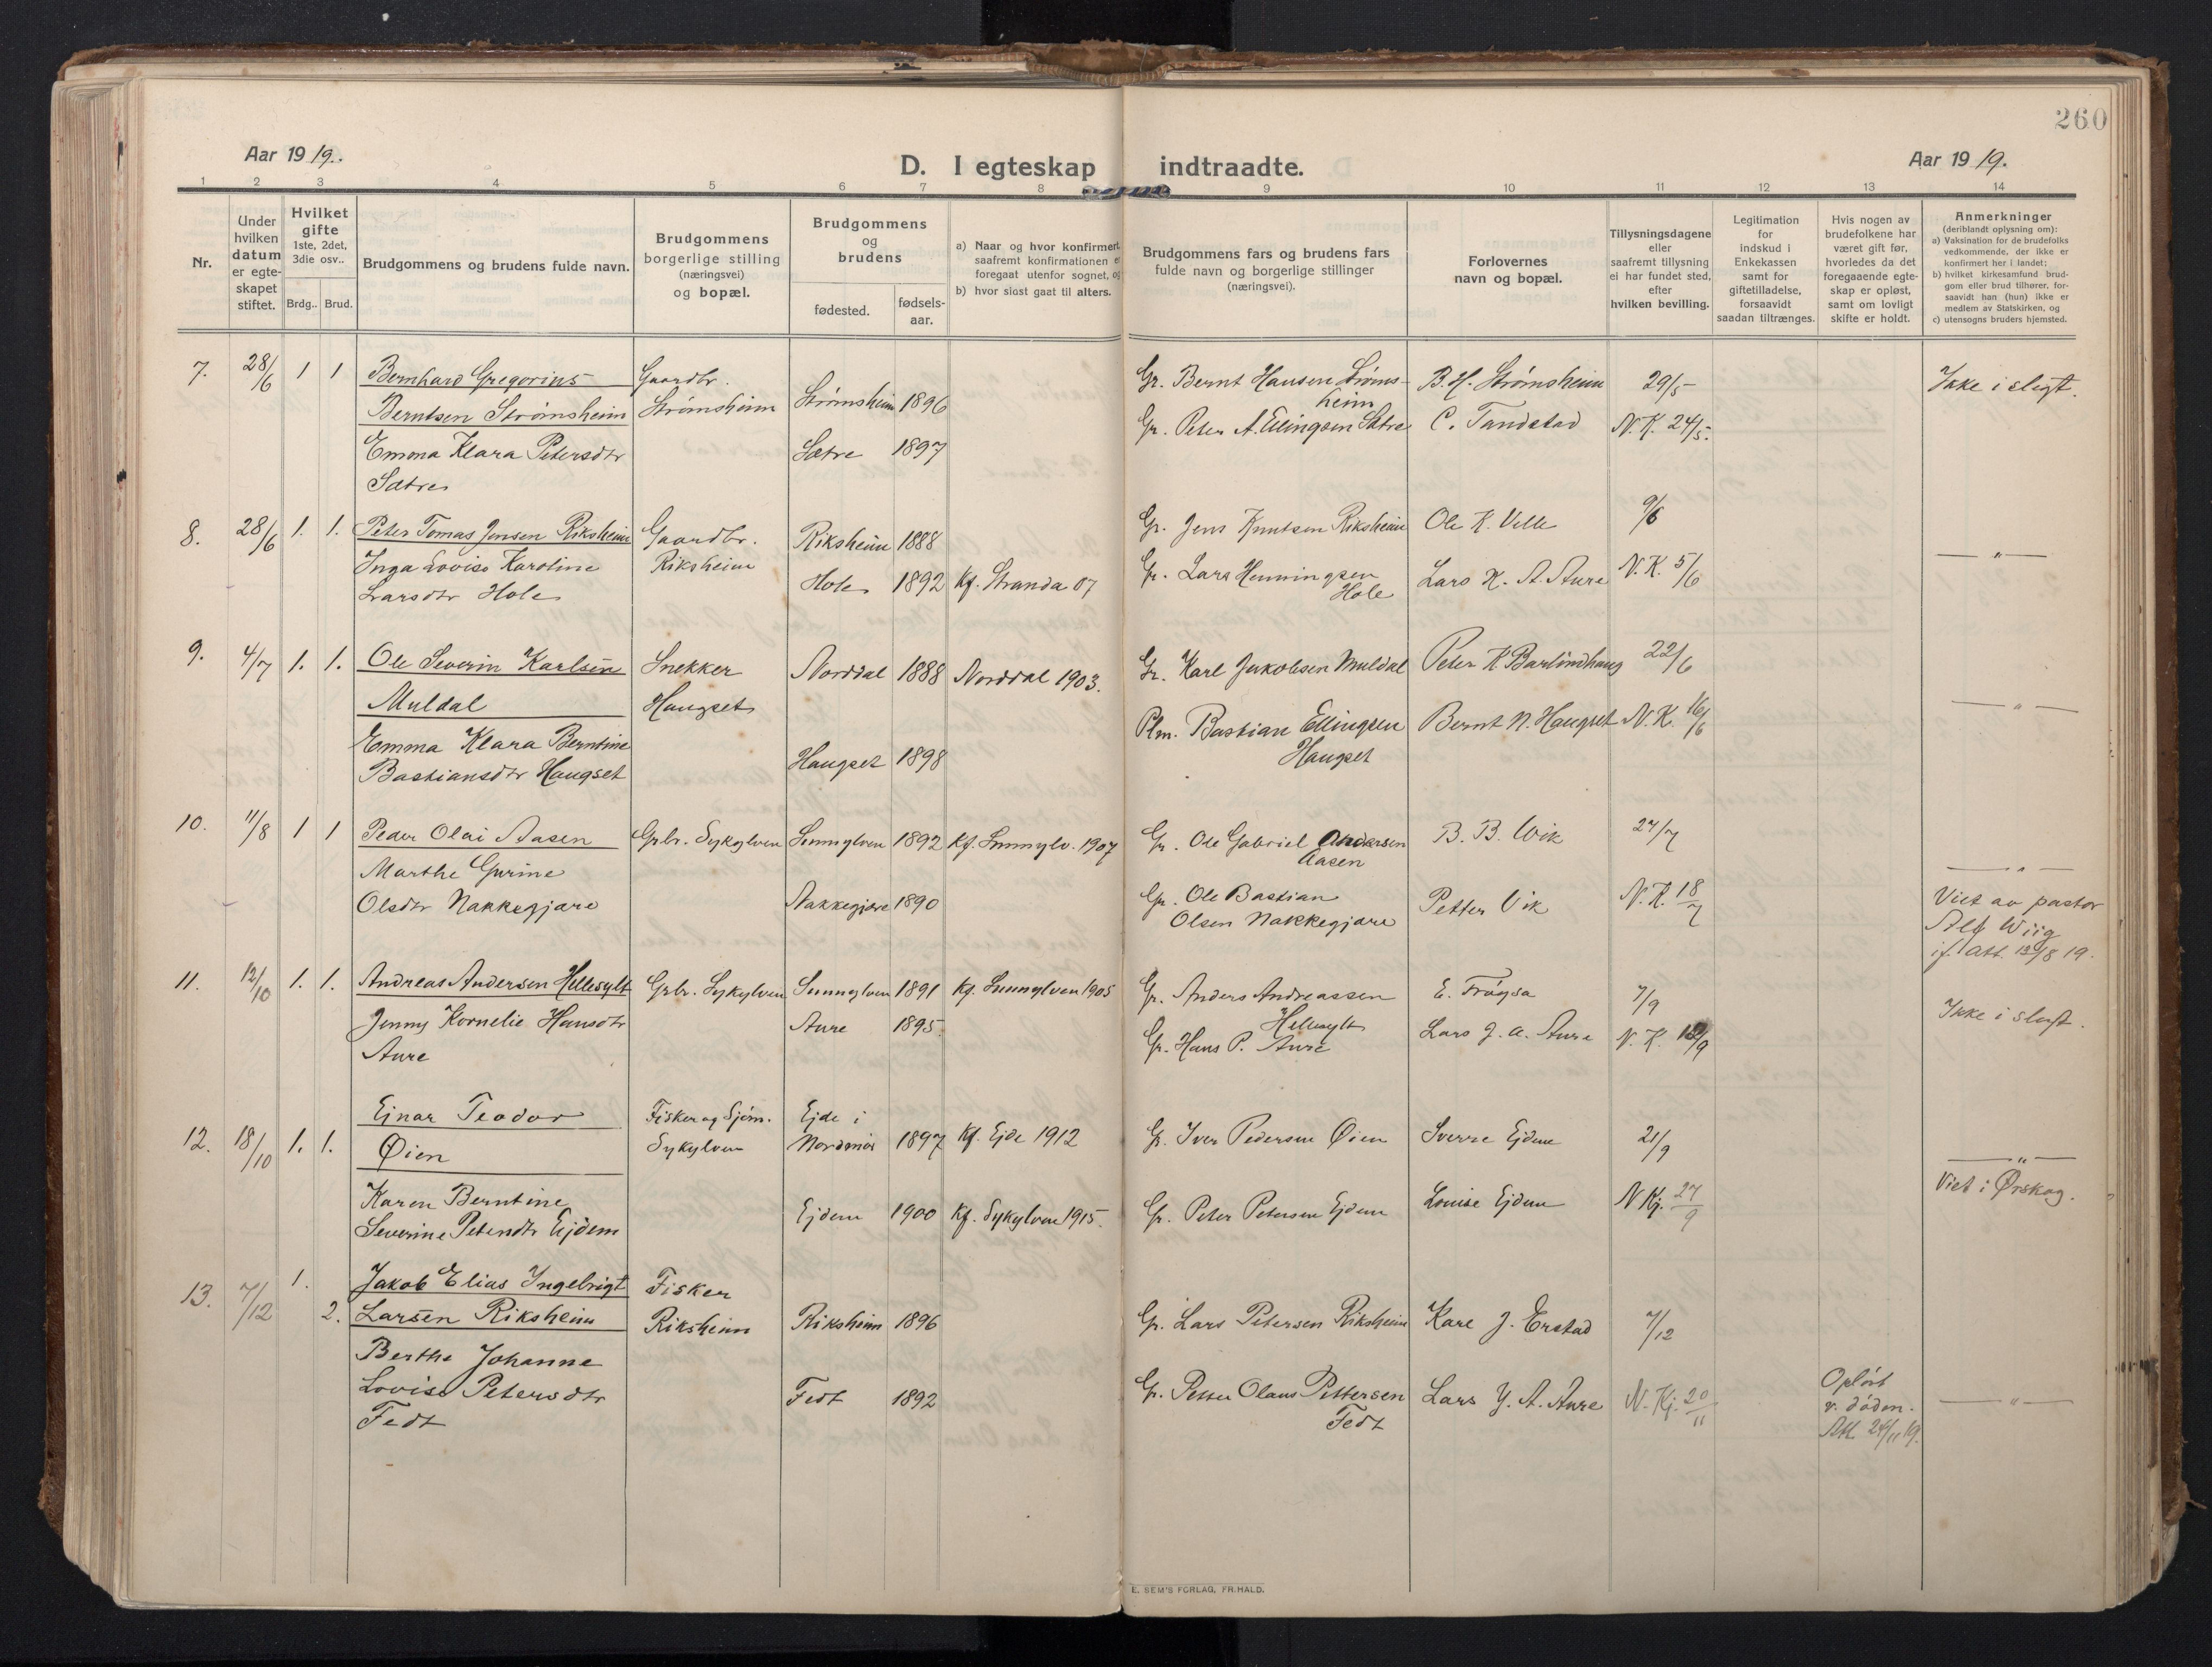 260
Aar 1919.
D. I egteskap indtraadte.
Aar 1919.
1 2 3 4 5 6 7 8 9 10 11 12 13 14
Nr.
Under
hvilken
datum
er egte-
skapet
stiftet.
Hvilket
gifte
1ste, 2det,
3die osv..
Brdg.. Brud.
Brudgommens og brudens fulde navn.
Brudgommens
borgerlige stilling
(næringsvei)
og bopæl.
Brudgommens
og
brudens
fødested.
fødsels-
aar.
a) Naar og hvor konfirmert
saafremt konfirmationen
foregaat utenfor sognet, og
b) hvor sidst gaat til alters.
Brudgommens fars og brudens fars
fulde navn og borgerlige stillinger
(næringsvei).
Forlovernes
navn og bopæl.
Tillysningsdagene
eller
saafremt tillysning
ei har fundet sted,
efter
hvilken bevilling.
Legitimation
for
indskud i
Enkekassen
samt for
giftetilladelse,
forsaavidt
saadan tiltrænges.
Hvis nogen av
brudefolkene har
været gift før,
hvorledes da det
foregaaende egte-
skap er opløst,
samt om lovligt
skifte er holdt.
Anmerkninger
(deriblandt oplysning om):
a) Vaksination for de brudefolks
vedkommende, der ikke er
konfirmert her i landet;
b) hvilket kirkesamfund brud-
gom eller brud tilhører, for-
saavidt han (hun) ikke er
medlem av Statskirken, og
c) utensogns bruders hjemsted.
7. 28/6 1 1 Bernhard Gregorius Gaardbr. Gr. Bernt Hansen Strøms- B. H. Strømsheim 29/5 Ikke i slegt.
Berntsen Strømsheim Strømsheim Strømsheim 1896 heim
Gr. Peter A. Ellingsen Sætre C. Tandstad N. K. 24/5.
Emma Klara Petersdtr Sætre 1897
Sætre
8. 28/6 1. 1. Peter Tomas Jensen Riksheim Gaardbr. Riksheim 1888 Gr. Jens Knutsen Riksheim Ole K. Velle 9/6
Inga Lovise Karoline Riksheim Gr. Lars Henningsen N. K. 5/6 — " —
Larsdtr Hole Hole 1892 Kf. Stranda 07 Hole Lars K. A. Aure
9. 4/7 1. 1. Ole Severin Karlsen Snekker Norddal 1888 Norddal 1903. Gr. Karl Jakobsen Muldal Peter K Barlindhaug 22/6
Muldal Haugset — " —
Emma Klara Berntine Plm. Bastian Ellingsen Bernt N. Haugset N. K. 16/6
Bastiansdtr Haugset Haugset 1898 Haugset
10. 11/8 1 1 Peder Olai Aasen Grbr. Sykylven Sunnylven 1892 Kf. Sunnylv. 1907 Gr. Ole Gabriel Andersen B. B. Wik 27/7
Marthe Gurine Aasen — " —
Olsdtr Nakkegjære Nakkegjære 1890 Gr. Ole Bastian Petter Vik N. K. 18/7 Viet av pastor
Olsen Nakkegjære Alb Wiig
if. att. 13/8 19.
11. 12/10 1. 1. Andreas Andersen Hellesylt Grbr. Sykylven Sunnylven 1891 Kf. Sunnylven 1905 Gr. Anders Andreassen E. Frøysa 7/9
Jenny Kornelie Hansdtr Aure 1895. Hellesylt Ikke i slegt.
Aure Gr. Hans P. Aure Lars J. A. Aure N. K. 12/9
Ejnar Teodor Fisker og Sjøm. Ejde i
12. 18/10 1. 1. Øien Sykylven Nordmør 1897 Kf. Ejde 1912 Gr. Iver Pedersen Øien Sverre Ejdem 21/9
— " —
Karen Berntine Viet i Ørskog.
Severine Petersdtr Ejdem Ejdem 1900 Kf. Sykylven 1915. Gr. Peter Petersen Ejdem Louise Ejdem N Kj. 27/9
13. 7/12 1. Jakob Elias Ingebrigt Fisker
2. Larsen Riksheim Riksheim Riksheim 1896 Gr. Lars Petersen Riksheim Kare J. Erstad 7/12
Berthe Johanne
Lovise Petersdtr Fedt 1892 Gr. Petter Olaus Pettersen Lars J. A. Aure N. Kj. 20/11 Opløst — " —
Fedt Fedt v. døden.
Att 24/11 19.
E. SEM'S FORLAG, FR.HALD.